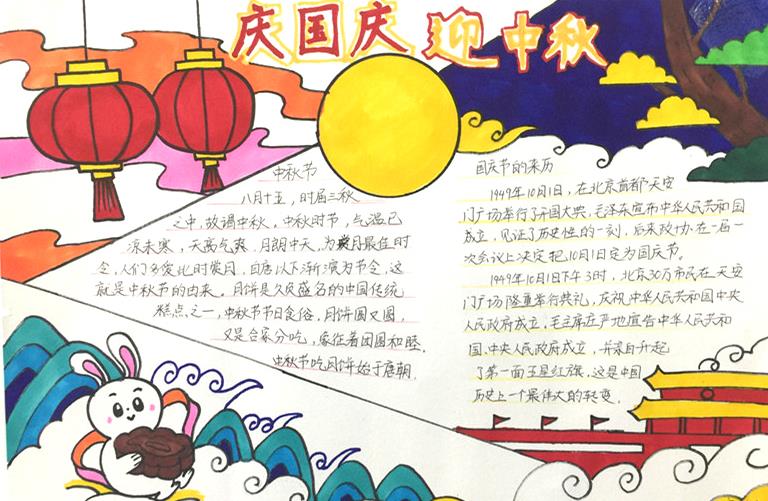 庆国庆 迎中秋
中秋节
八月十五，时届三秋
之中，故谓中秋。中秋时节，气温已
凉未寒，天高气爽，月朗中天，为赏月最佳时
令，人们多爱此时赏月，自唐以下渐演为节令，这
就是中秋节的由来。月饼是久负盛名的中国传统
糕点之一，中秋节节日食俗。月饼圆又圆，
又是合家分吃，象征着团圆和睦。
中秋节吃月饼始于唐朝。
国庆节的来历
1949年10月1日，在北京首都天安
门广场举行了开国大典，毛泽东宣布中华人民共和国
成立，见证了历史性的一刻，后来政协在一届一
次会议上决定把10月1日定为国庆节。
1949年10月1日下午3时，北京30万市民在天安
门广场隆重举行典礼，庆祝中华人民共和国中央
人民政府成立。毛主席庄严地宣告中华人民共和
国、中央人民政府成立，并亲自升起
了第一面五星红旗，这是中国
历史上一个最伟大的转变。